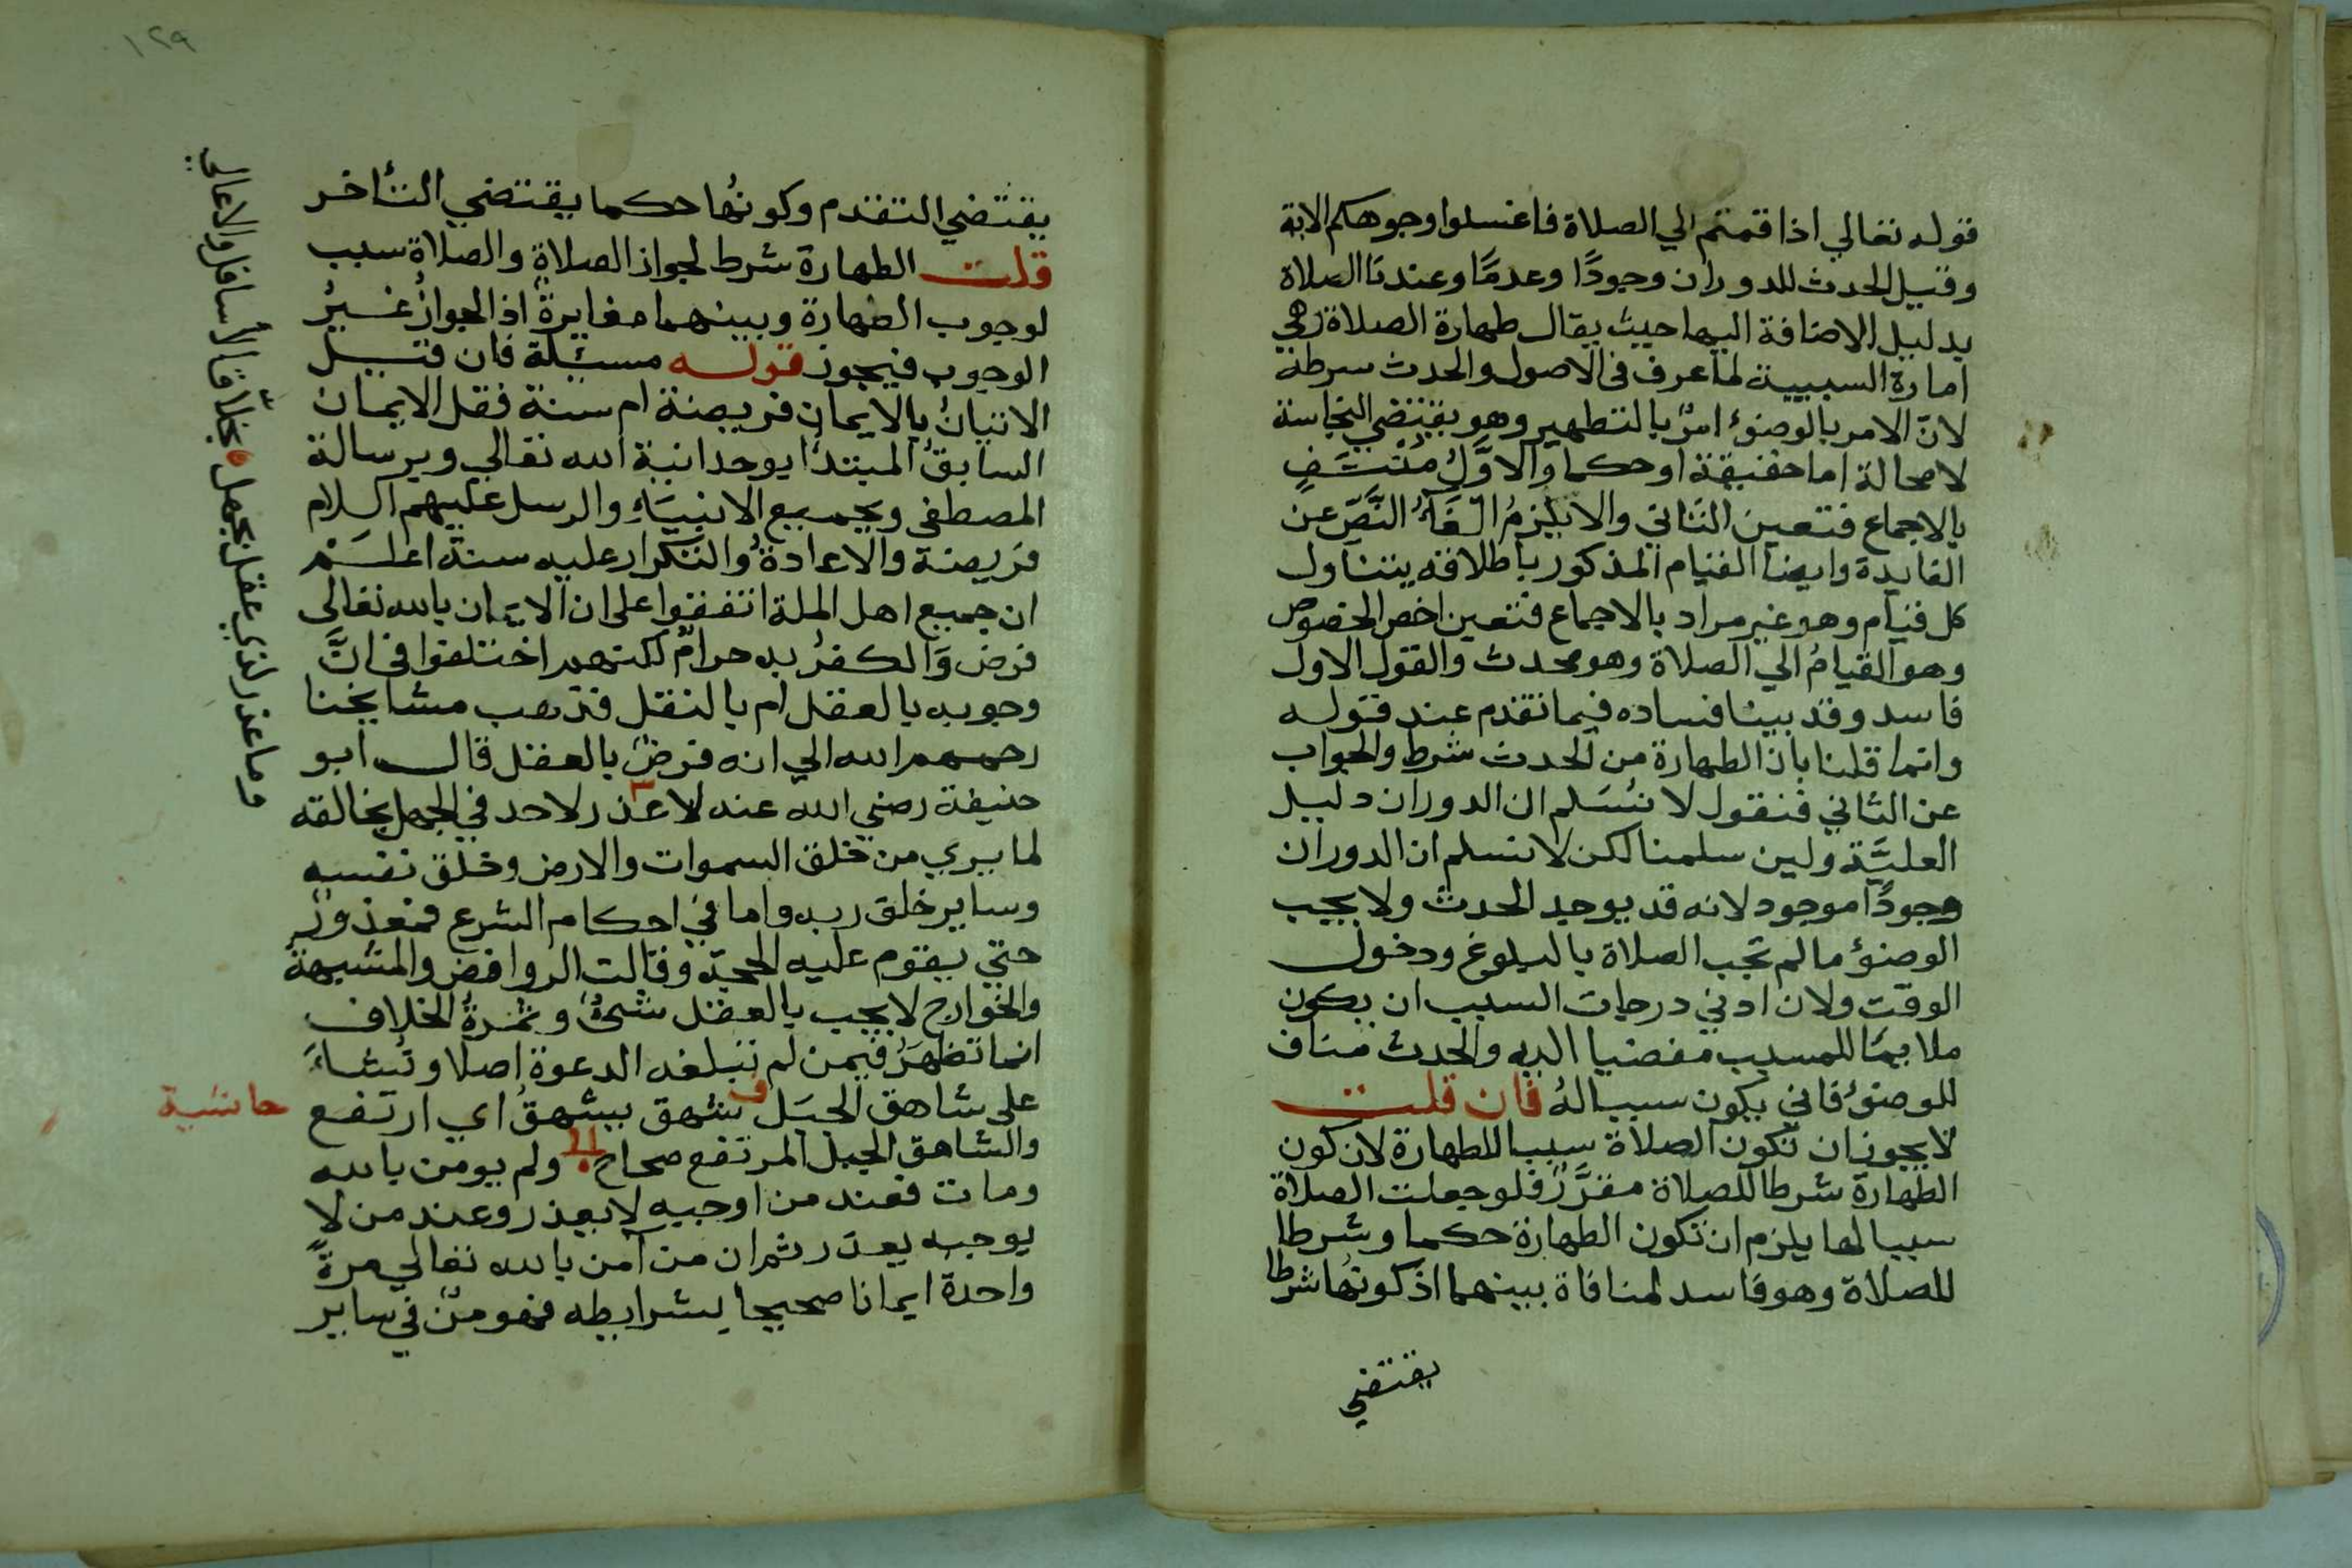 قوله تعالي اذا قمتم الي الصلاة فاغسلوا وجوهكم الاية
وقيل الحدث للدوران وجودًا وعدمًا وعندنا الصلاة
بدليل الاضافة اليها حيث يقال طهارة الصلاة وهي
امارة السببية لما عرف في الاصول والحدث شرطه
لانّ الامر بالوضوء امرٌ بالتطهير وهو يقتضي النجاسة
لا محالة اما حقيقة او حكما والاوَّلُ مُنْتَفٍ
بالاجماع فتعين الثاني والا يلزمُ الغَاءُ النَّصّ عن
الفايدة وايضا القيام المذكور باطلاقه يتناول
كل قيام وهو غير مراد بالاجماع فتعين اخص الخصوص
وهو القيامُ الي الصلاة وهو محدث والقول الاول
فاسد وقد بينا فساده فيما تقدم عند قوله
وانما قلنا بان الطهارة من الحدث شرط والجواب
عن الثاني فنقول لا نُسَلم ان الدوران دليل
العليَّة ولين سلمنا لكن لا نسلم ان الدوران
وجودًا موجود لانه قد يوجد الحدث ولا يجب
الوضوُء ما لم تجب الصلاة بالبلوغ ودخول
الوقت ولان ادني درجات السبب ان يكون
ملايمًا للمسبب مفضيا اليه والحدث مناف
للوضوُء فاني يكون سببا لهُ فان قلت
لا يجوز ان تكون الصلاة سببا للطهارة لان كون
الطهارة شرطا للصلاة مقرَّرٌ فلو جعلت الصلاة
سببا لها يلزم ان تكون الطهارة حكما وشرطا
للصلاة وهو فاسد لمنافاة بينهما اذ كونُها شرطا
يقتضي
١٢٩
يقتضي التقدم وكونُها حكما يقتضي التأخر
قلت الطهارة شرط لجواز الصلاةِ والصلاة سبب
لوجوب الطهارة وبينهما مغايرةٌ اذ الجوازُ غيرُ
الوجوب فيجوز قوله مسئلة فان قيل
الاتيانُ بالايمان فريضة ام سنة فقل الايمان
السابقُ المبتدأ بوحدانية الله تعالي وبرسالة
المصطفي وبجميع الانبيَاءِ والرسل عليهم السلام
فريضة والاعادةُ والتكرار عليه سنة اعلَمْ
ان جميع اهل الملة اتفقوا علي ان الايمان بالله تعالي
فرض وَالكفرُ به حرامٌ لكنهم اختلفوا في انَّ
وجوبه بالعقل ام بالنقل فذهب مشايخنا
رحمهم الله الي انه فرضٌ بالعقل قال ابو
حنيفة رضي الله عنه لا عذر لاحد في الجهل بخالقه
لما يري من خلق السموات والارض وخلق نفسه
وساير خلق ربه واما في احكام الشرع فمعذورٌ
حتي يقوم عليه الحجة وقالت الروافض والمشبهة
والخوارج لا يجب بالعقل شئٌ وثمرةُ الخلاف
انما تظهَرُ فيمن لم تبلغه الدعوة اصلا ونشاءَ
علي شاهق الجبَل ف شهق يشهقُ اي ارتفع
حاشية
والشاهق الجبل المرتفع صحاح ولم يومن بالله
ومات فعند من اوجبه لا يعذر وعند من لا
يوجبه يعذر ثم ان من آمن بالله تعالي مرةً
واحدة ايمانا صحيحا بشرايطه فهو مومنٌ في ساير
وما عذر لذي عقل بجهل بخلّاق الأسافل والاعالي